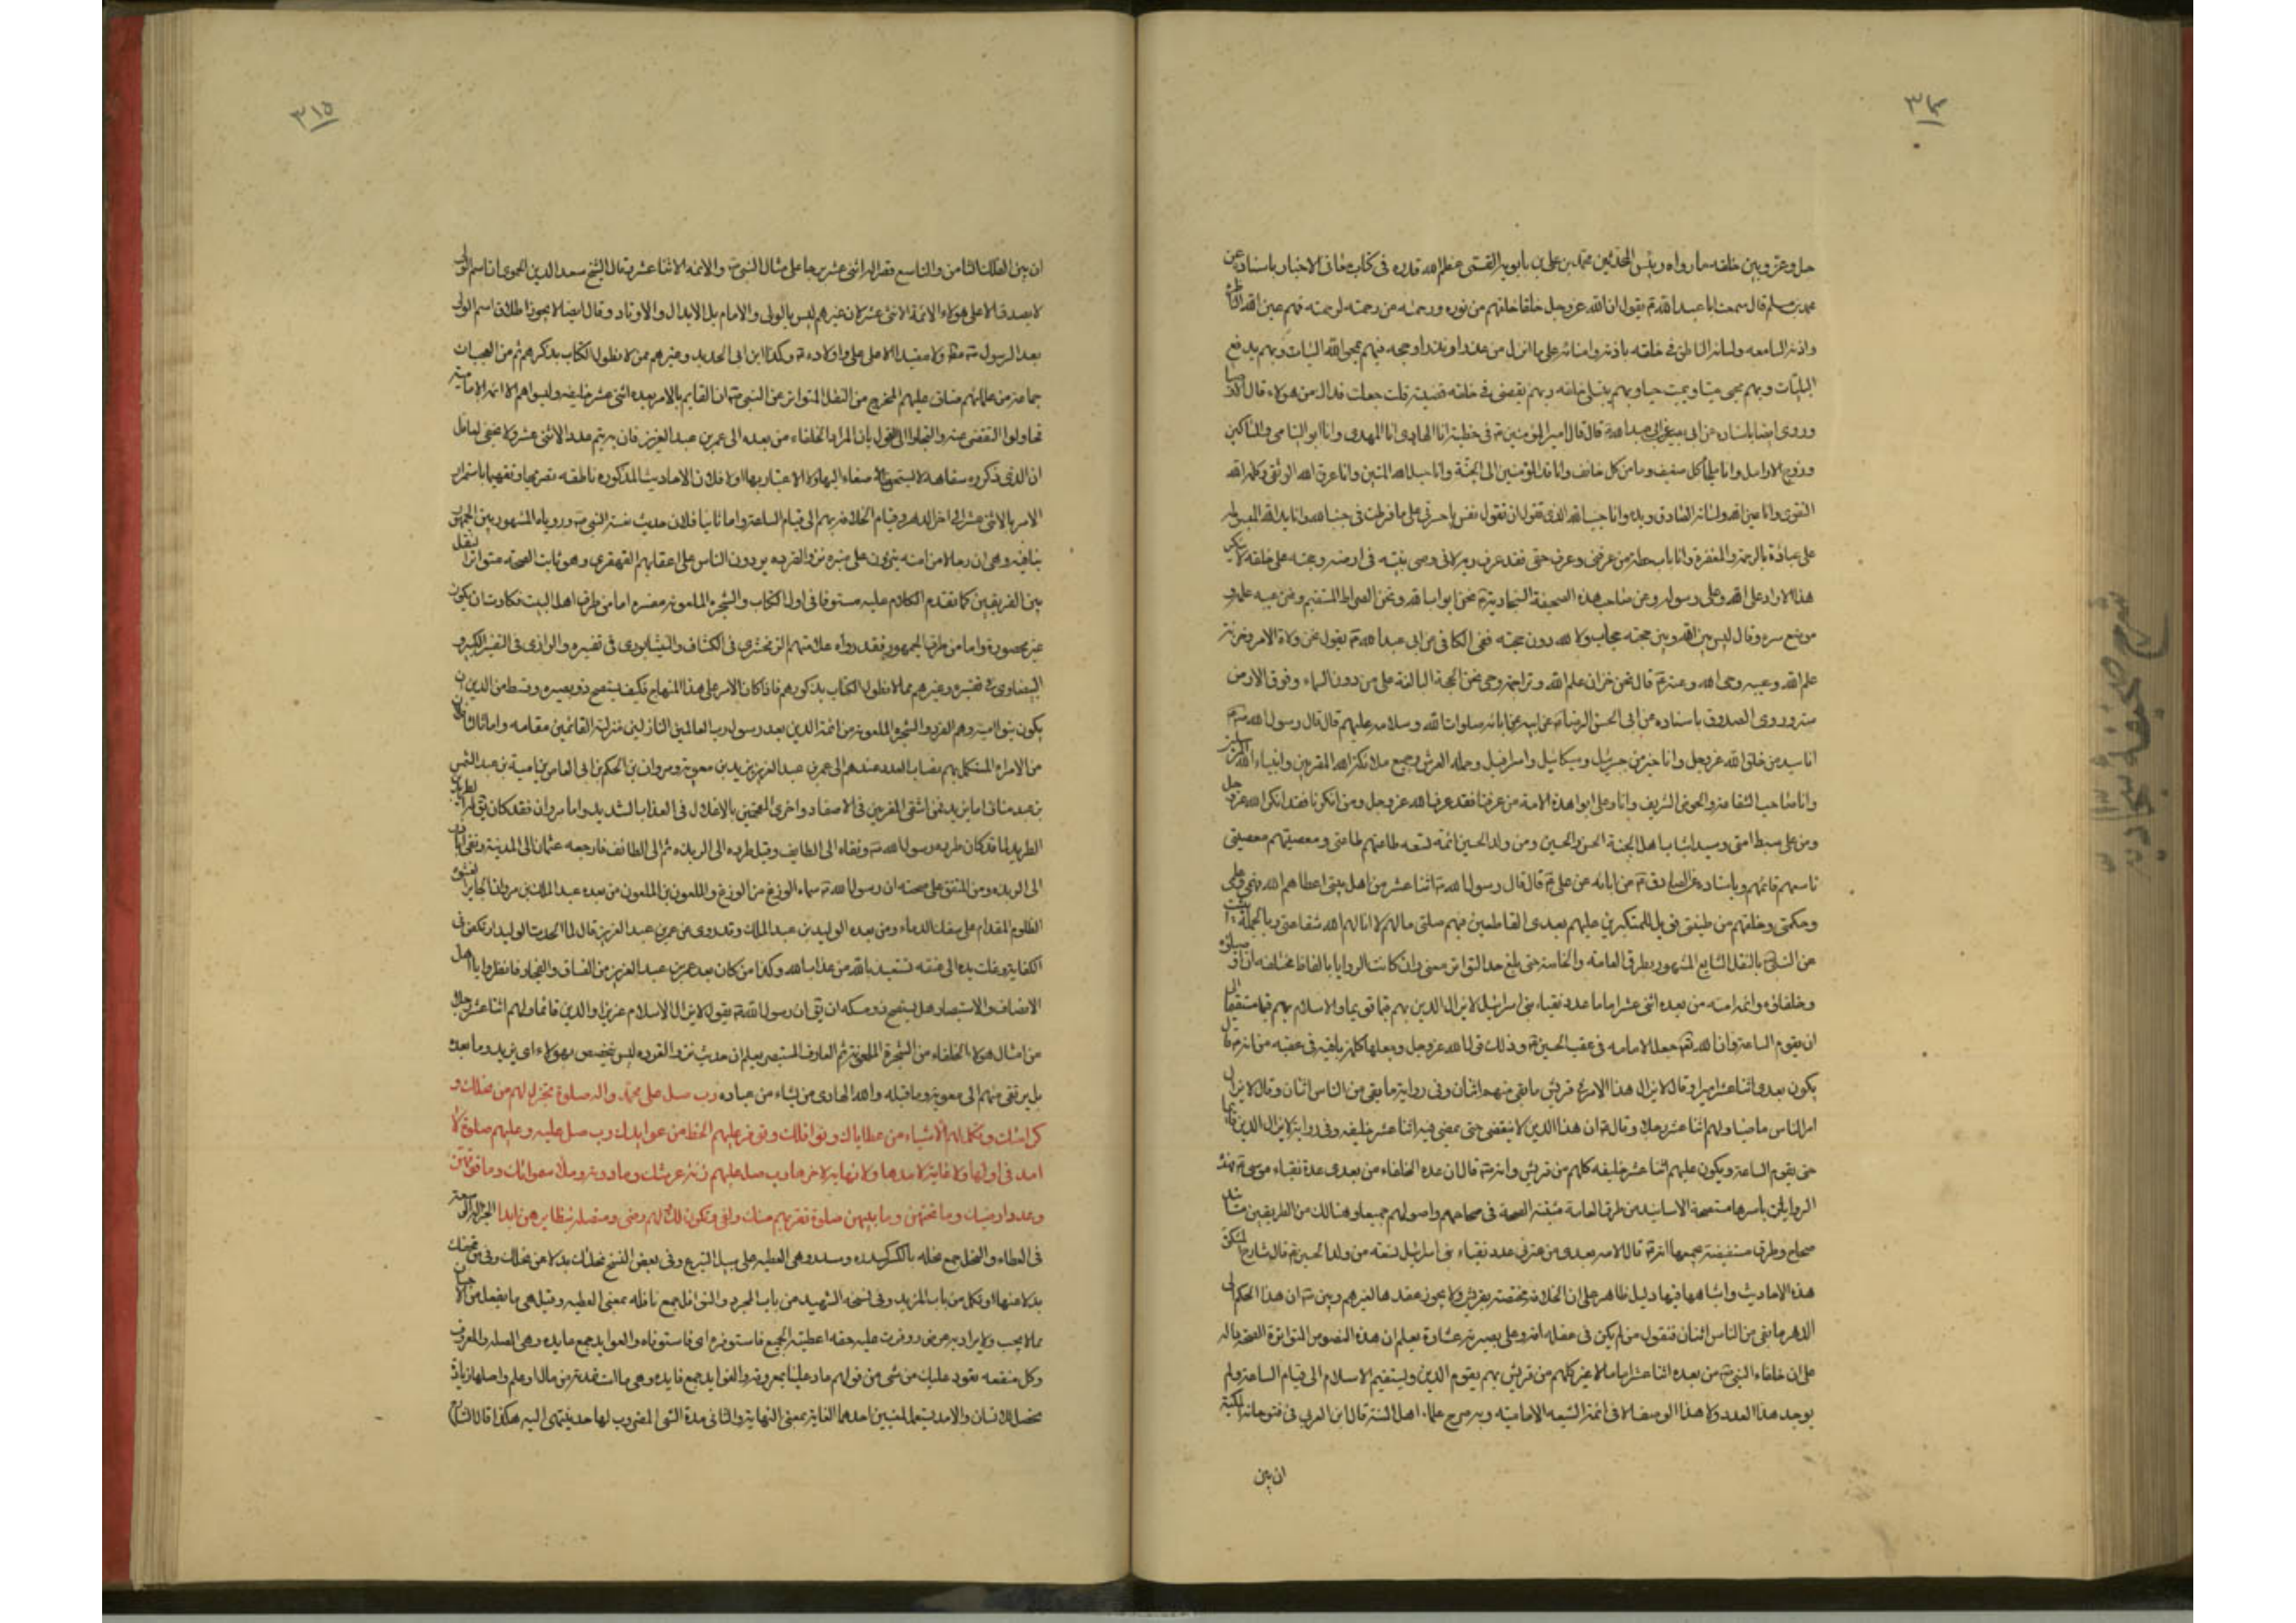 ٣١٤
جل وعز وبين خلقه بما رواه رئيس المحدثين محمد بن علي بن بابويه القمي عظم الله قدره في كتاب معاني الاخبار باسناده عن
محمد بن مسلم قال سمعت ابا عبد الله ع يقول ان لله عز وجل خلقا خلقهم من نوره ورحمته من رحمته لرحمته فهم عين الله الناظره
واذنه السامعه ولسانه الناطق في خلقه باذنه وامنائه على ما انزل من عذر او نذر او حجه فبهم يمحو الله السيئات وبهم يدفع
البليات وبهم يحيى ميتا ويميت حيا وبهم يبتلى خلقه وبهم يقضى في خلقه قضيته قلت جعلت فداك من هولاء قال الاوصيا
وروى ايضا باسناده عن ابى بصير عن ابى عبد الله ع قال قال امير المؤمنين ع في خطبته انا الهادى انا المهدى وانا ابو اليتامى والمساكين
وزوج الارامل وانا ملجأ كل ضعيف ومامن كل خائف وانا قائد المؤمنين الى الجنة وانا حبل الله المتين وانا عروة الله الوثقى وكلمة الله
التقوى وانا عين الله ولسانه الصادق ويده وانا جنب الله الذى تقول ان تقول نفس يا حسرتى على ما فرطت في جنب الله وانا يد الله المبسوطه
على عباده بالرحمة والمغفرة وانا باب حطة من عرفنى وعرف حقى فقد عرف ربه لانى وصى نبيه في ارضه وحجته على خلقه لا ينكر
هذا الا راد على الله وعلى رسوله وعن صاحب هذه الصحيفة السجادية ع نحن ابواب الله ونحن الصراط المستقيم ونحن عيبه علمه و
موضع سره وقال ليس بين الله وبين حجته حجاب ولا لله دون حجته ففي الكافي عن ابى عبد الله ع يقول نحن ولاة الامر وخزنة
علم الله وعيبه وحى الله وعنه ع قال نحن خزان علم الله وتراجمة وحى نحن الحجة البالغة على من دون السماء وفوق الارض
وروى الصدوق باسناده عن ابى الحسن الرضا ع عن ابيه عن ابائه صلوات الله وسلامه عليهم قال قال رسول الله ص
انا سيد من خلق الله عز وجل وانا خير من جبرئيل وميكائيل واسرافيل وحملة العرش وجميع ملائكة الله المقربين وانبياء الله المرسلين
وانا صاحب الشفاعة والحوض الشريف وانا وعلى ابوا هذه الامة من عرفنا فقد عرف الله عز وجل ومن انكرنا فقد انكر الله عز وجل
ومن على سبطا امتى وسيدا شباب اهل الجنة الحسن والحسين ومن ولد الحسين ائمة تسعه طاعتهم طاعتى ومعصيتهم معصيتى
تاسعهم قائمهم وباسناده عن الصادق ع عن ابائه عن على ع قال قال رسول الله ص اثنا عشر من اهل بيتى اعطاهم الله فهمى وعلمى
وحكمتى وخلقهم من طينتى فويل للمتكبرين عليهم بعدى القاطعين فيهم صلتى مالهم لا انالهم الله شفاعتى وبالجملة
عن النبى ص بالنقل الشايع المشهور بطرق العامة والخاصة حتى بلغ حد التواتر معنى وان كانت الروايا بالفاظ مختلفه ان اوصيائه
وخلفائه وائمة امته من بعده اثنى عشر اماما عدد نقباء بنى اسرائيل لا يزال الدين بهم قائما قويما والاسلام بهم قيما مستقيما الى
ان يقوم الساعة وان الله جعل الامامه في عقب الحسين ع وذلك قول الله عز وجل وجعلها كلمة باقية في عقبه من انه ع قال
يكون بعدى اثنا عشر اميرا وقال لا يزال هذا الامر في قريش ما بقى منهم اثنان وفى رواية ما بقى من الناس اثنان وقال لا يزال
امر الناس ماضيا ولهم اثنا عشر رجلا وقال ع ان هذا الدين لا ينقضى حتى يمضى فيه اثنا عشر خليفه وفى رواية لا يزال الدين قائما
حتى يقوم الساعة ويكون عليهم اثنا عشر خليفه كلهم من قريش وانه ع قال ان عده الخلفاء من بعدى عدة نقباء موسى ع
الروايات باسرها متصحة الاسانيد من طرق العامة مثبتة الصحة في صحاحهم واصولهم جميعا وهنالك من الطريقين
صحاح وطرق مستفيضة جميعها انه ع قال الامر بعدى من عترتى عدد نقباء بنى اسرائيل تسعه من ولد الحسين ع قال شارح المشكوة
هذه الاحاديث واشباهها فيها دليل ظاهر على ان الخلافه مختصة بقريش ولا يجوز عقدها لغيرهم وبين ع ان هذا الحكم الى
الدهر ما بقى من الناس اثنان فنقول من لم يكن في عقله افه وعلى بصيرته غشاوة يعلم ان هذه النصوص المتواترة
على ان خلفاء النبى ص من بعده اثنا عشر اماما لا غير كلهم من قريش بهم يقوم الدين ويستقيم الاسلام الى قيام الساعة ولم
يوجد هذا العدد ولا هذا الوصف الا في ائمة الشيعه الاماميه وبه صرح علماء اهل السنة قال ابن العربى في فتوحاته المكية
ان بين
٣١٥
ان بين الفلك الثامن والتاسع قصر له اثنى عشر برجا على مثال النبى ص والائمه الاثنا عشر وقال الشيخ سعد الدين الحموى ان اسم الولى
لا يصدق الا على هولاء الائمة الاثنى عشر لان غيرهم ليس بالولى والامام بل الابدال والاوتاد وقال ايضا لا يجوز اطلاق اسم الولى
بعد الرسول ص مطلقا ولا مقيدا الا على على واولاده ع وكذا ابن ابى الحديد وغيرهم ممن لا نطول الكتاب بذكرهم ثم من العجب ان
جماعة من علمائهم ضاق عليهم المخرج من النقل المتواتر عن النبى ص ان القايم بالامر بعده اثنى عشر خليفه وليسوا هم الا ائمة الاماميه
فحاولوا التفصى عنه والتجاوا الى القول بان المراد الخلفاء من بعده الى عمر بن عبد العزيز فان به يتم عدد الاثنى عشر ولا يخفى لعاقل
ان الذى ذكروه سفاهة لا يستحق الاصغاء اليها ولا الاعتبار بها اولا فلان الاحاديث المذكوره ناطقه بتصريحها وتفهيمها باستمرار
الامر بالاثنى عشر الى اخر الدهر وقيام الخلافه بهم الى قيام الساعة واما ثانيا فلان حديث نفسه النبى ص ورؤياه المشهور بين الجمهور
ينافيه وهى ان رجالا من امته ينزون على منبره نزو القرده يردون الناس على اعقابهم القهقرى وهو ثابت الصحه متواتر النقل
بين الفريقين كما تقدم الكلام عليه مستوفا في اول الكتاب والشجرة الملعونه مفسره اما من طرق اهل البيت فكادت ان يكون
غير محصوره واما من طرق الجمهور فقد رواه علامتهم الزمخشري في الكشاف والنيشابورى في تفسيره والرازى في التفسير الكبير و
البيضاوى في تفسيره وغيرهم مما لا نطول الكتاب بذكورهم فاذا كان الامر على هذا المنهاج فكيف يستصح ذو بصيره وقسط من الدين ان
يكون بنو امية وهم القرد والشجره الملعونه من ائمة الدين بعد رسول رب العالمين النازلين منزلة القائمين مقامه واما ثالثا فلان
من الامراء المستكمل بهم نصاب العدد عندهم الى عمر بن عبد العزيز يزيد بن معوية ومروان بن الحكم بن ابى العاص بن امية بن عبد الشمس
بن عبد مناف اما يزيد فمن اشقى المقرنين في الاصفاد واخرى المقمحين بالاغلال في العذاب الشديد واما مروان فقد كان يق له ابن الطريد
الطريد لما قد كان طرده رسول الله ص ونفاه الى الطايف وقيل طرده الى الربذه ثم الى الطائف فارجعه عثمان الى المدينة ونفى ابا ذر
الى الربذه ومن المتفق على صحته ان رسول الله ص سماه الوزغ من الوزغ والملعون بن الملعون من بعده عبد الملك بن مروان الجاير الغشوم
الظلوم المقدام على سفك الدماء ومن بعده الوليد بن عبد الملك وقد روى عن عمر بن عبد العزيز قال لما الحدت الوليد ارتكض في
اكفانه وغلت يده الى عنقه نستعيذ بالله من عذاب الله وكذا من كان بعد عمر بن عبد العزيز من الفساق والفجار فانظروا يا اهل
الانصاف والاستبصار هل يستصح ذو مسكه ان يق ان رسول الله ص يقول لا يزال الاسلام عزيزا والدين قائما ولهم اثنا عشر رجلا
من امثال هولاء الخلفاء من الشجرة الملعونه ثم العارف المستبصر يعلم ان حديث نزو القرده ليس تخصص بهولاء اى يزيد وما بعده
بل يرتقى منهم الى معوية وما قبله والله الهادى من يشاء من عباده رب صل على محمد واله صلوة تجزل لهم من نحلك و
كرامتك وتكمل لهم الاشياء من عطاياك ونوافلك وتوفر عليهم الحظ من عوايدك رب صل عليه وعليهم صلوة لا
امد في اولها ولا غاية لامدها ولا نهاية لاخرها رب صل عليهم زنة عرشك وما دونه وملا سمواتك وما فوقهن
وعدد ارضيك وما تحتهن وما بينهن صلوة تقربهم منك زلفى وتكون لك ولهم رضى ومتصله بنظايرهن ابدا الجزاله السعة
في العطاء والنحل جمع نحله بالكسر كسدره وسدر وهى العطيه على سبيل التبرع وفى بعض النسخ نحلك بدلا من نحلك
بدلا منها وتكمل من باب المزيد وفى نسخه الشهيد من باب المجرد والنوافل جمع نافله بمعنى العطيه وقيل هى ما يفعل من الاحسان
مما لا يجب ولا يراد به عوض ووفرت عليه حقه اعطيته الجميع فاستوفره اى فاستوفاه والعوايد جمع عايده وهى الصله والمعروف
وكل منفعه تعود عليك من شى من قولهم عاد علينا بمعروفه والفوايد جمع فايده وهى ما استفدته من مال او علم واصلها زيادة
تحصل للانسان والامد يستعمل لمعنيين احدهما الغاية بمعنى النهاية والثانى مدة الشى المضروب لها حد ينتهى اليه هكذا قال الشارح
شرح صحيفه سجاديه